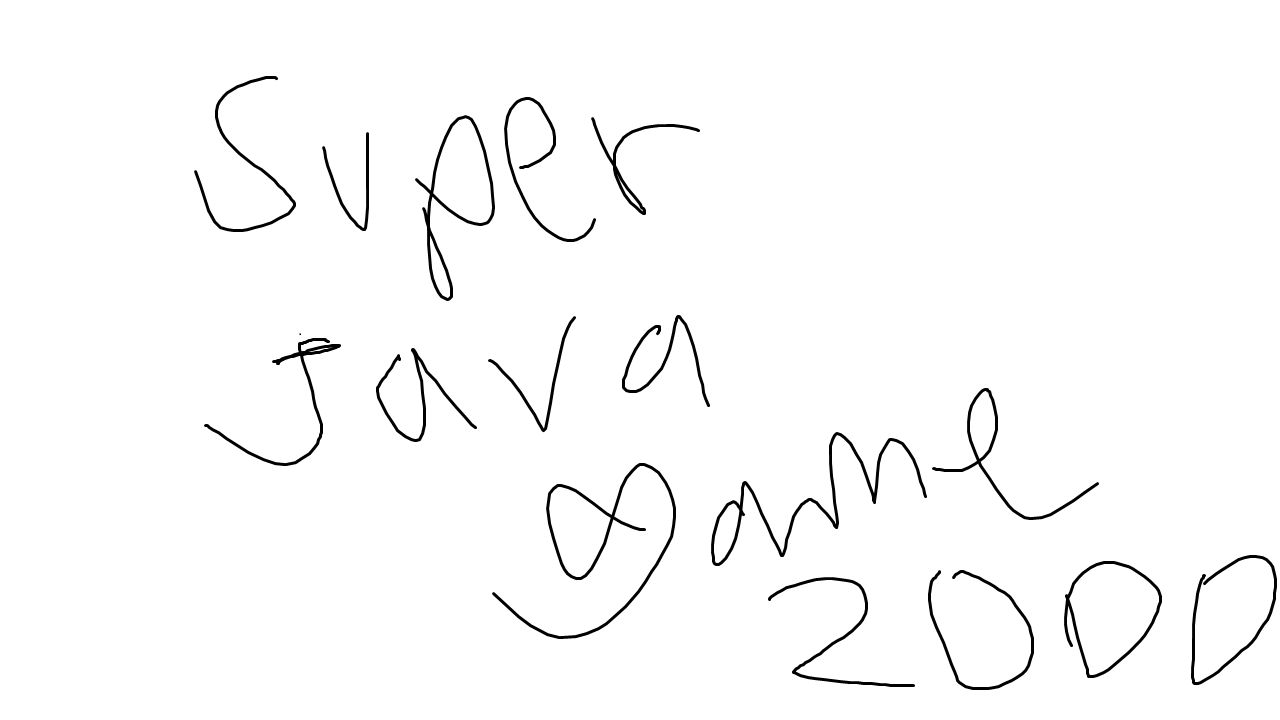 Super
Java
game
2000